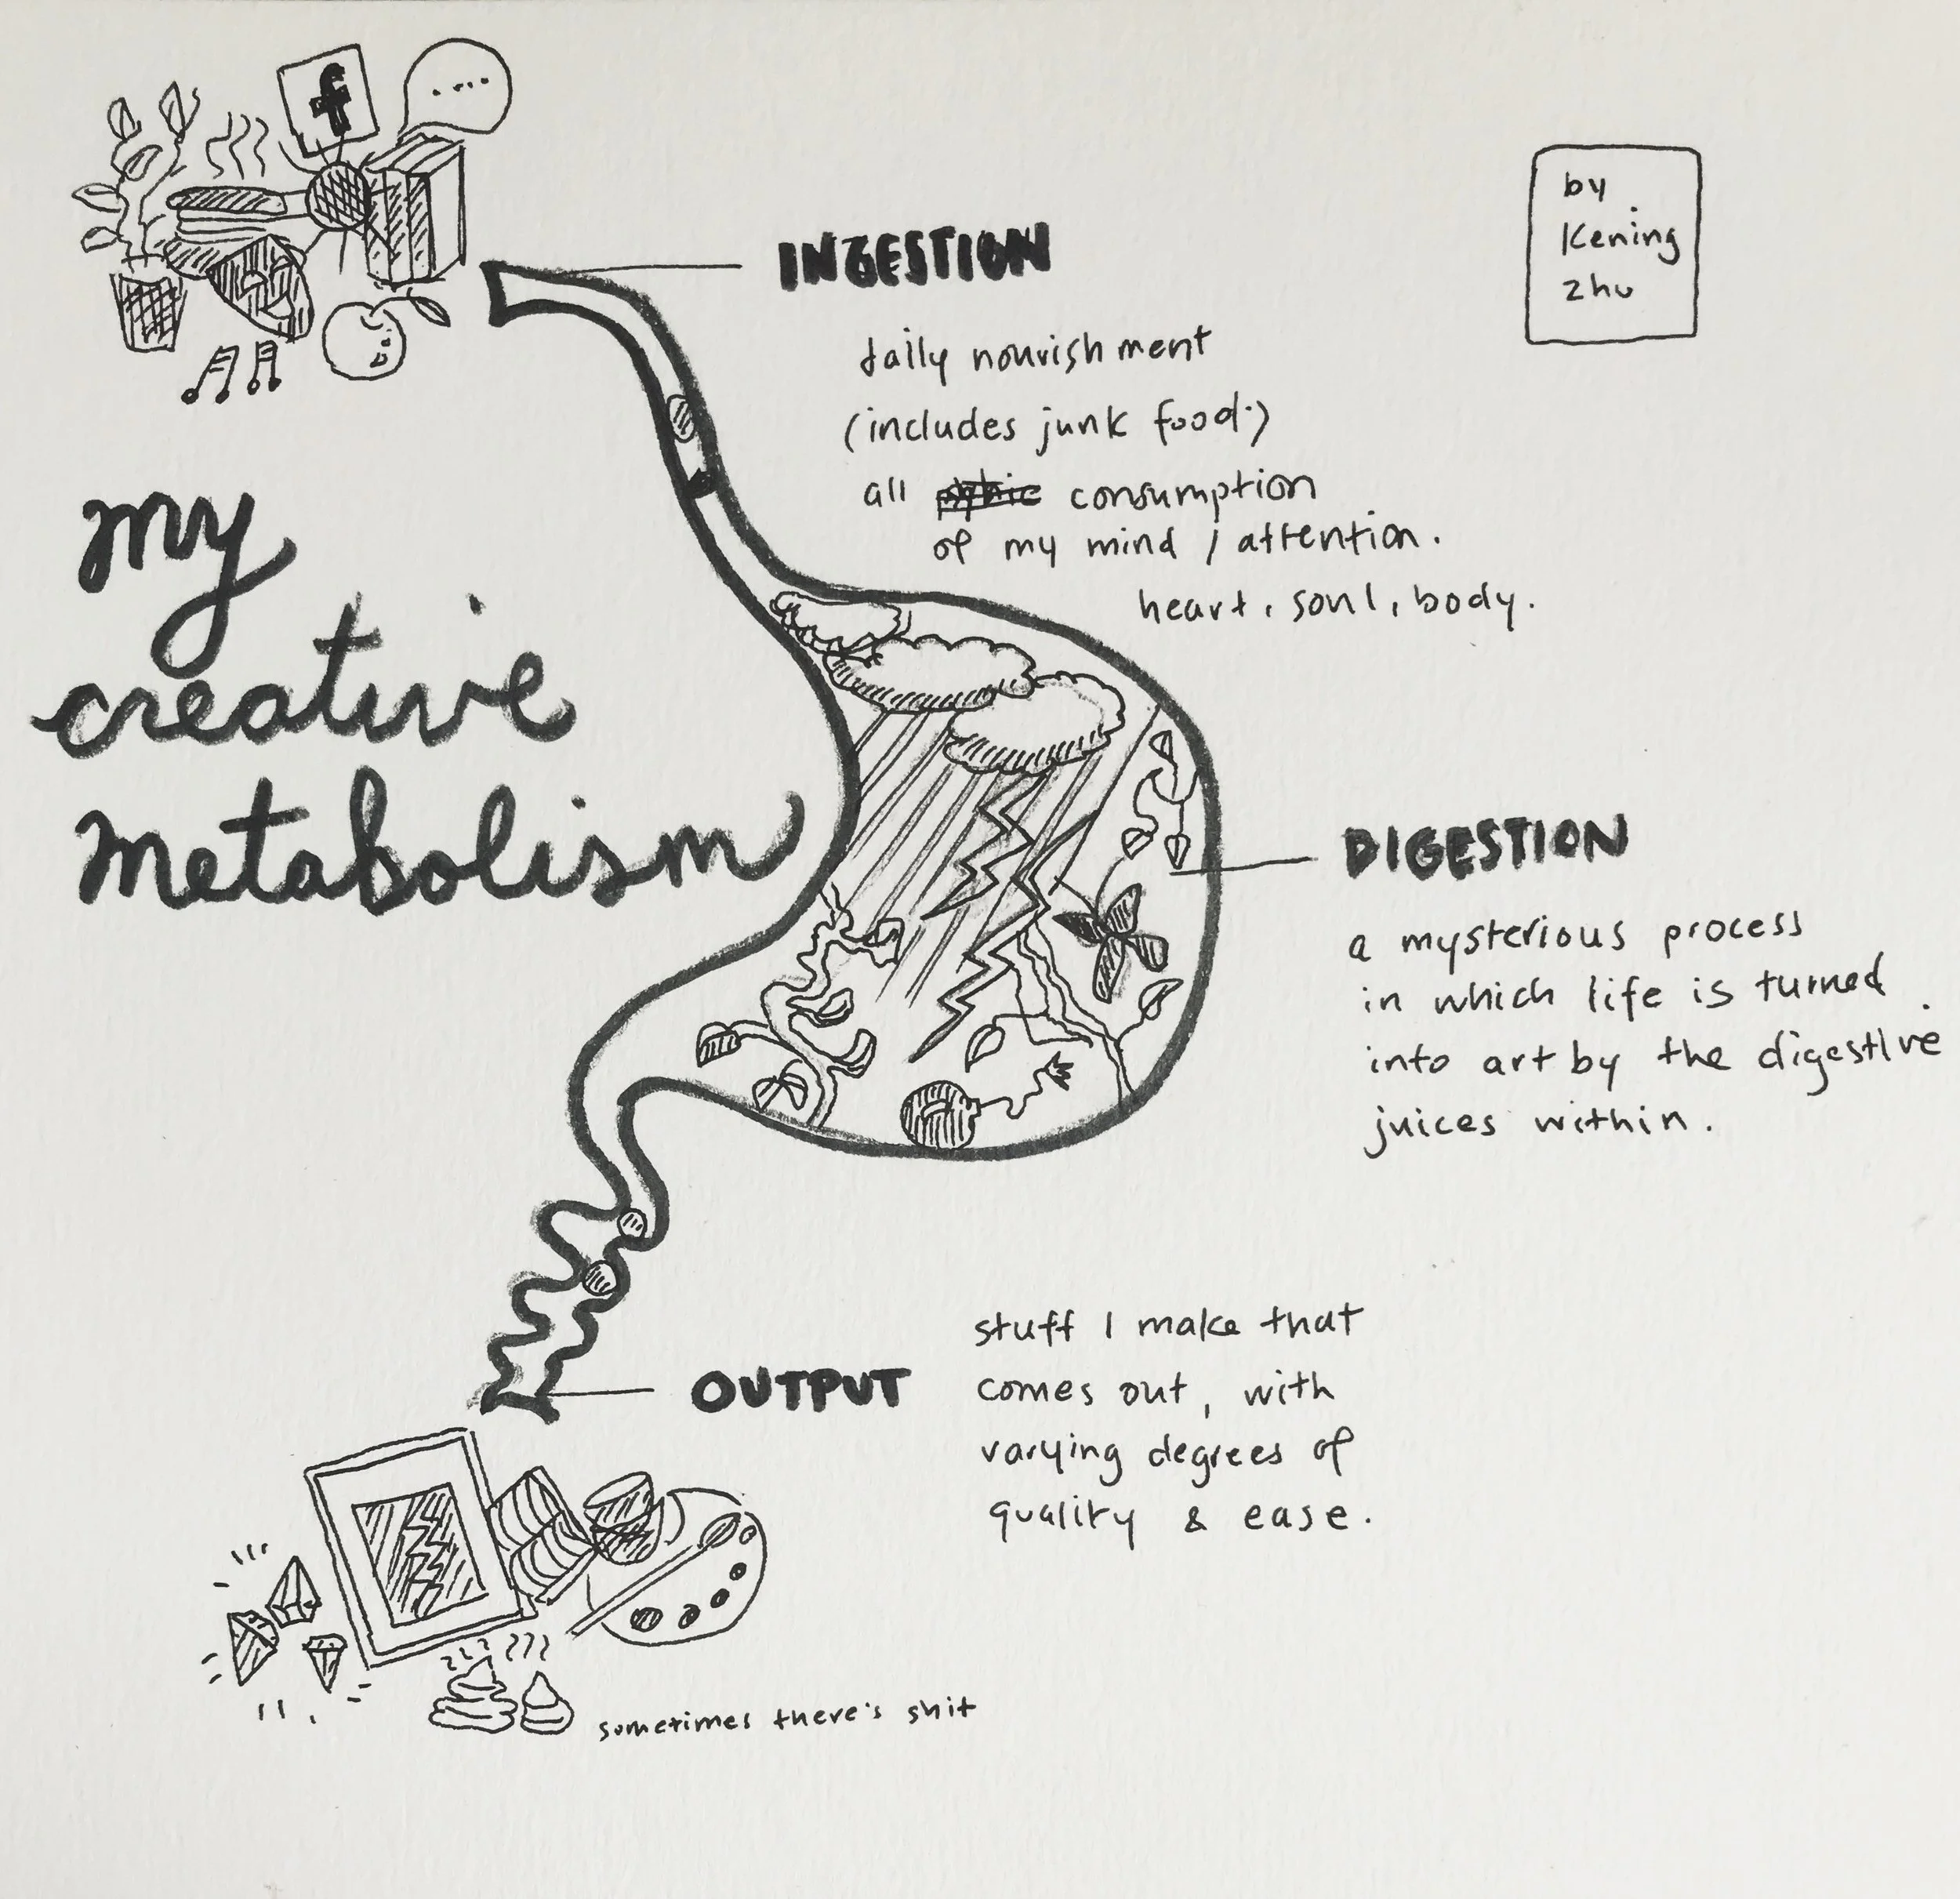 f
by
Kening
zhu
INGESTION
daily nourishment
(includes junk food)
all consumption
of my mind / attention.
heart, soul, body.
my
creative
metabolism
DIGESTION
a mysterious process
in which life is turned
into art by the digestive
juices within.
OUTPUT
stuff I make that
comes out, with
varying degrees of
quality & ease.
sometimes there's shit